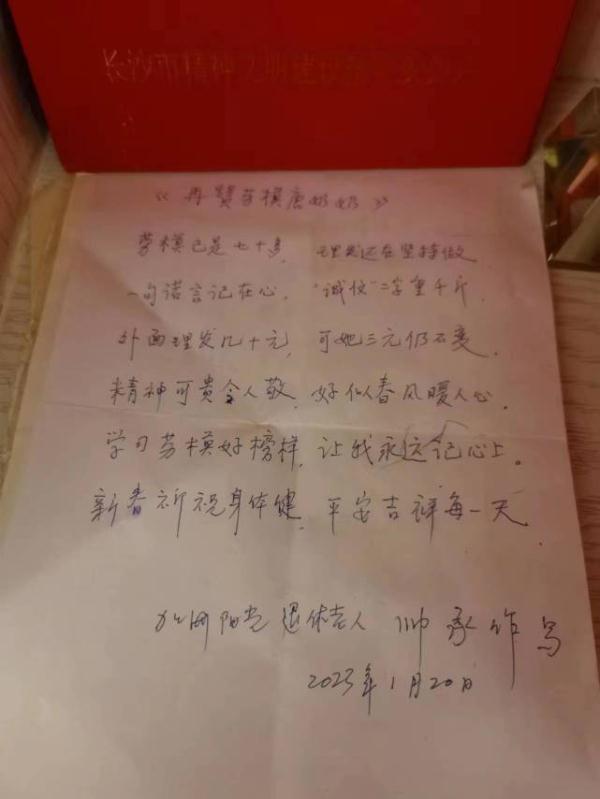 长沙市精神文明建设
《再赞劳模唐奶奶》
劳模已是七十多，理发还在坚持做
一句诺言记在心，“诚信”二字重千斤，
外面理发几十元，可她三元仍不变，
精神可贵令人敬，好似春风暖人心，
学习劳模好榜样，让我永远记心上。
新春祈祝身体健，平安吉祥每一天
阳光退休老人 帅承作写
2023年1月20日